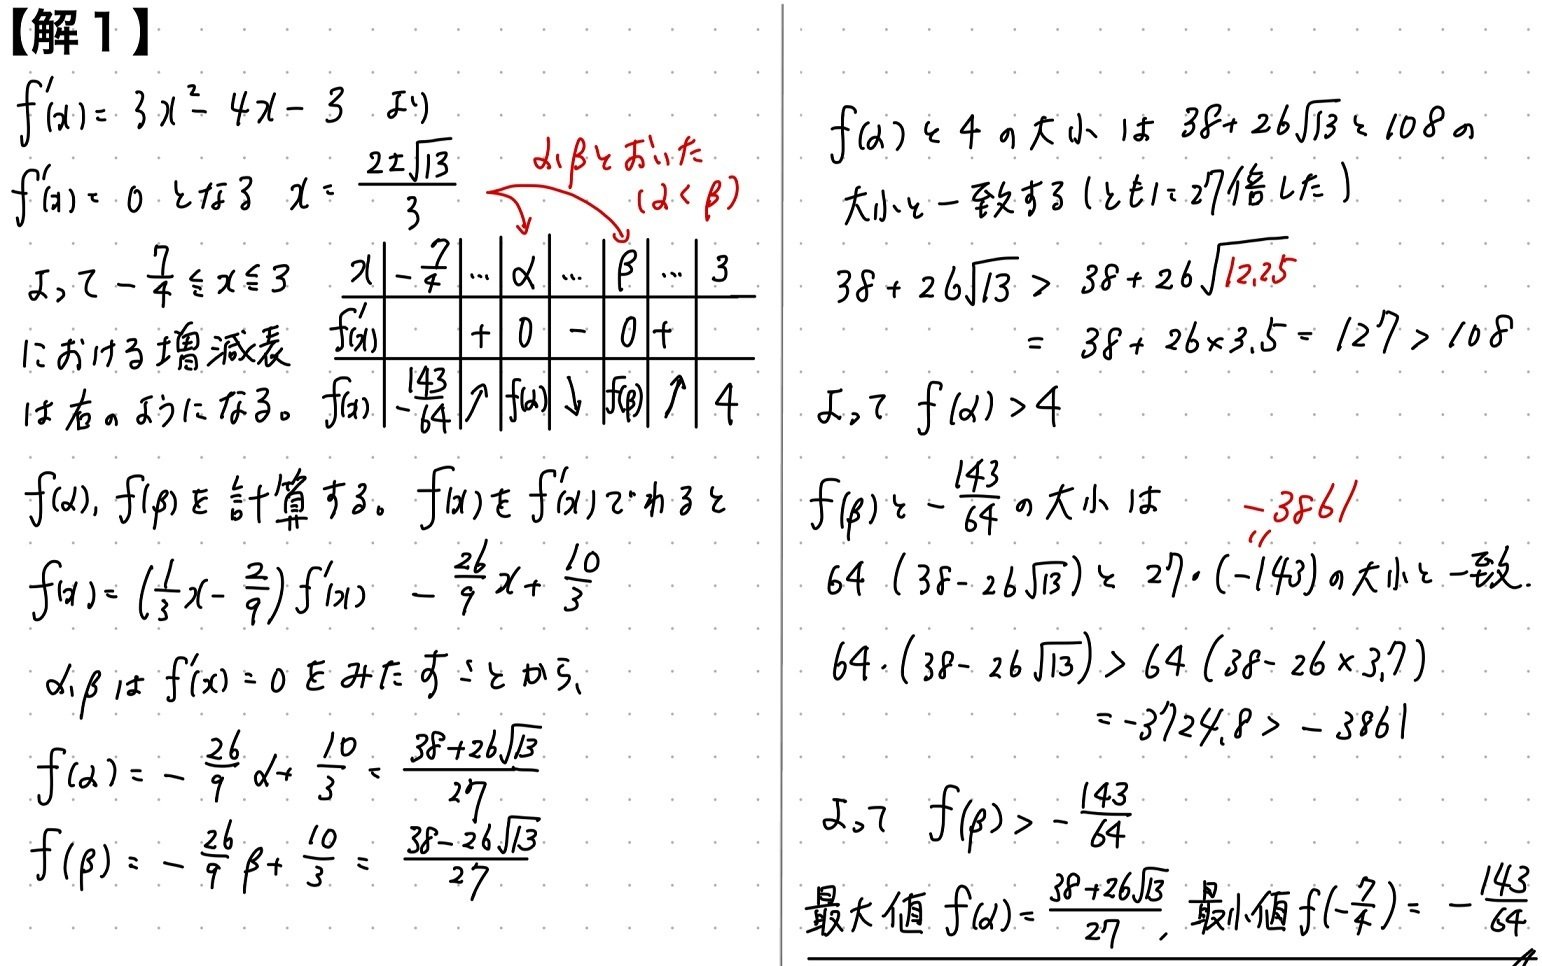 【解1】
f'(x) = 3x² - 4x - 3 より
f'(x) = 0 となる x = (2±√13)/3
α,βとおいた
(α<β)
よって -7/4 ≦ x ≦ 3
における増減表
は右のようになる。
x | -7/4 | … | α | … | β | … | 3
f'(x) | | + | 0 | - | 0 | + |
f(x) | -143/64 | ↗ | f(α) | ↘ | f(β) | ↗ | 4
f(α), f(β)を計算する。f(x)をf'(x)でわると
f(x) = (1/3 x - 2/9) f'(x) - 26/9 x + 10/3
α,βは f'(x) = 0 をみたすことから、
f(α) = - 26/9 α + 10/3 = (38+26√13)/27
f(β) = - 26/9 β + 10/3 = (38-26√13)/27
f(α)と4の大小は 38+26√13と108の
大小と一致する(ともに27倍した)
38+26√13 > 38+26√12.25
= 38+26×3.5 = 127 > 108
よって f(α) > 4
f(β)と -143/64 の大小は
-3861
〃
64 (38-26√13)と 27・(-143)の大小と一致.
64・(38-26√13) > 64 (38-26×3.7)
= -3724.8 > -3861
よって f(β) > -143/64
最大値 f(α) = (38+26√13)/27, 最小値 f(-7/4) = -143/64